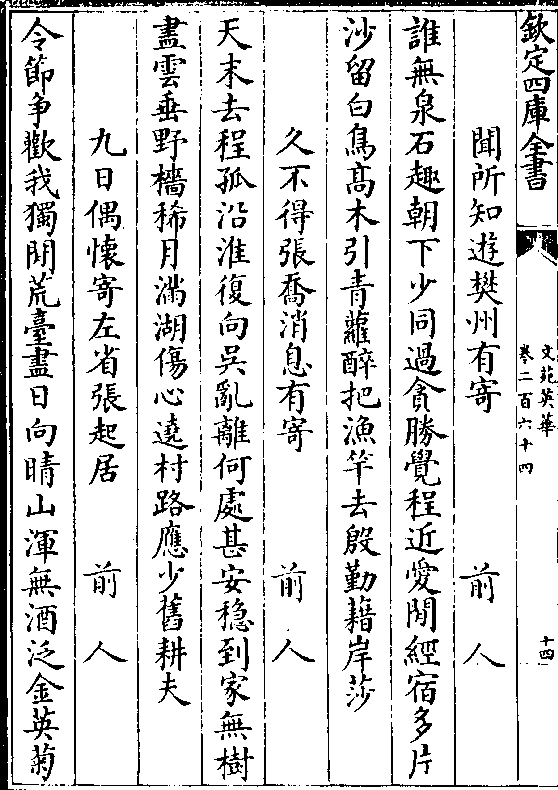 欽定四庫全書
文苑英華
卷二百六十四
十四
聞所知遊樊州有寄 前人
誰無泉石趣朝下少同過貪勝覺程近愛閒經宿多片
沙留白鳥髙木引青蘿醉把漁竿去殷勤藉岸莎
久不得張喬消息有寄 前人
天末去程孤沿淮復向吳亂離何處甚安穏到家無樹
盡雲垂野檣稀月滿湖傷心遶村路應少舊耕夫
九日偶懐寄左省張起居 前人
令節争歡我獨閒荒臺盡日向晴山渾無酒泛金英菊